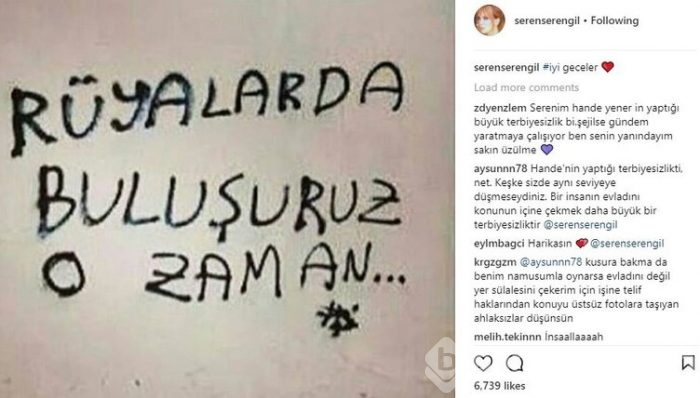 RÜYALARDA
BULUŞURUZ
O ZAMAN...
serenserengil • Following
serenserengil #iyi geceler
Load more comments
zdyenzlem Serenim hande yener in yaptığı
büyük terbiyesizlik bi.şejilse gündem
yaratmaya çalışıyor ben senin yanındayım
sakın üzülme
aysunnn78 Hande'nin yaptığı terbiyesizlikti,
net. Keşke sizde aynı seviyeye
düşmeseydiniz. Bir insanın evladını
konunun içine çekmek daha büyük bir
terbiyesizliktir @serenserengil
eylmbagci Harikasın @serenserengil
krgzgzm @aysunnn78 kusura bakma da
benim namusumla oynarsa evladını değil
yer sülalesini çekerim için işine telif
haklarından konuyu üstsüz fotolara taşıyan
ahlaksızlar düşünsün
melih.tekinnn İnsaallaaaah
6,739 likes
b